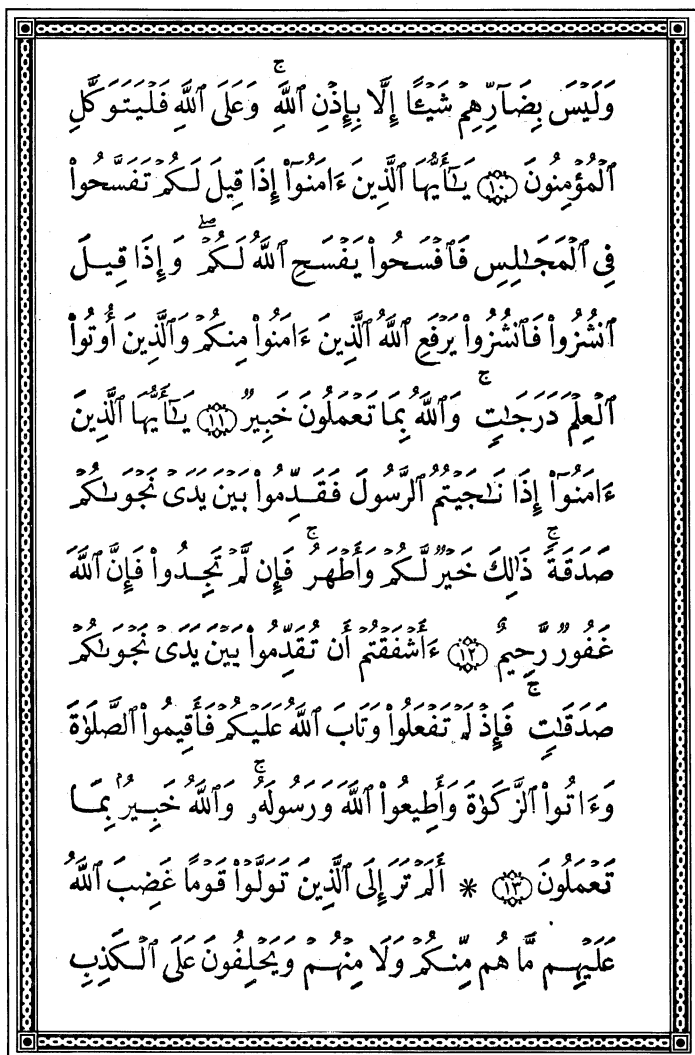 وَلَيْسَ بِضَآرِّهِمْ شَيْـًٔا إِلَّا بِإِذْنِ ٱللَّهِ ۚ وَعَلَى ٱللَّهِ فَلْيَتَوَكَّلِ
ٱلْمُؤْمِنُونَ ۝١٠ يَـٰٓأَيُّهَا ٱلَّذِينَ ءَامَنُوٓا۟ إِذَا قِيلَ لَكُمْ تَفَسَّحُوا۟
فِى ٱلْمَجَـٰلِسِ فَٱفْسَحُوا۟ يَفْسَحِ ٱللَّهُ لَكُمْ ۖ وَإِذَا قِيلَ
ٱنشُزُوا۟ فَٱنشُزُوا۟ يَرْفَعِ ٱللَّهُ ٱلَّذِينَ ءَامَنُوا۟ مِنكُمْ وَٱلَّذِينَ أُوتُوا۟
ٱلْعِلْمَ دَرَجَـٰتٍ ۚ وَٱللَّهُ بِمَا تَعْمَلُونَ خَبِيرٌ ۝١١ يَـٰٓأَيُّهَا ٱلَّذِينَ
ءَامَنُوٓا۟ إِذَا نَـٰجَيْتُمُ ٱلرَّسُولَ فَقَدِّمُوا۟ بَيْنَ يَدَىْ نَجْوَىٰكُمْ
صَدَقَةً ۚ ذَٰلِكَ خَيْرٌ لَّكُمْ وَأَطْهَرُ ۚ فَإِن لَّمْ تَجِدُوا۟ فَإِنَّ ٱللَّهَ
غَفُورٌ رَّحِيمٌ ۝١٢ ءَأَشْفَقْتُمْ أَن تُقَدِّمُوا۟ بَيْنَ يَدَىْ نَجْوَىٰكُمْ
صَدَقَـٰتٍ ۚ فَإِذْ لَمْ تَفْعَلُوا۟ وَتَابَ ٱللَّهُ عَلَيْكُمْ فَأَقِيمُوا۟ ٱلصَّلَوٰةَ
وَءَاتُوا۟ ٱلزَّكَوٰةَ وَأَطِيعُوا۟ ٱللَّهَ وَرَسُولَهُۥ ۚ وَٱللَّهُ خَبِيرٌۢ بِمَا
تَعْمَلُونَ ۝١٣ * أَلَمْ تَرَ إِلَى ٱلَّذِينَ تَوَلَّوْا۟ قَوْمًا غَضِبَ ٱللَّهُ
عَلَيْهِم مَّا هُم مِّنكُمْ وَلَا مِنْهُمْ وَيَحْلِفُونَ عَلَى ٱلْكَذِبِ